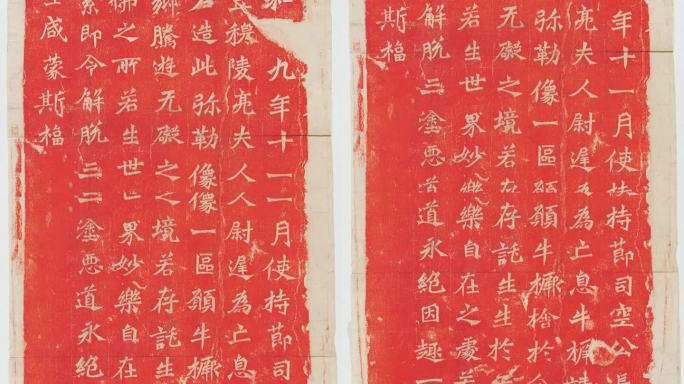 年十一月使持莭司空公長
亮夫人尉遅為亡息牛橛
弥勒像一區願牛橛捨於
无礙之境若存託生生於
若生世界妙樂自在之處若
解脫三塗惡道永絕因趣一
斯福
九年十一一月使持莭司
穆陵亮夫人人尉遅為亡息
造此弥勒像像一區願牛橛
鄉騰遊无礙之之境若存託生
佛之所若生世界妙樂自在
累即令解脫三塗惡道永絕
生咸蒙斯福